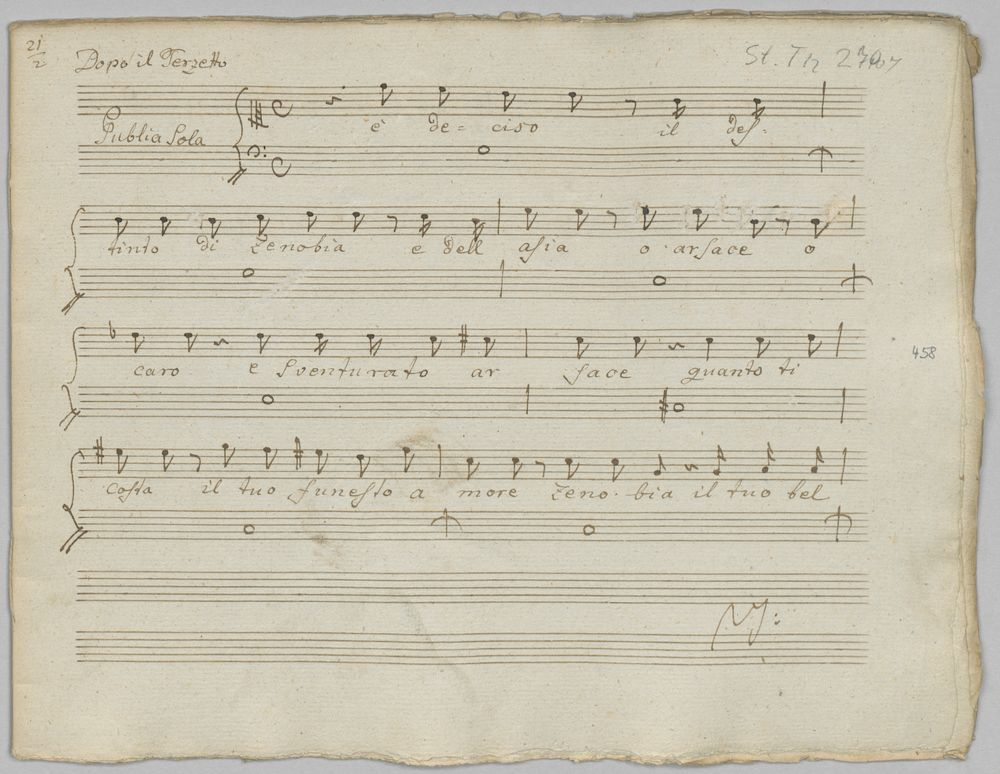 21/2 Dopo il Terzetto
St. Th
Publia Sola
è de= ciso il des-
tinto di Zenobia e dell asia o arsace o
caro e sventurato ar sace quanto ti
458
costa il tuo funesto a more Zeno-bia il tuo bel